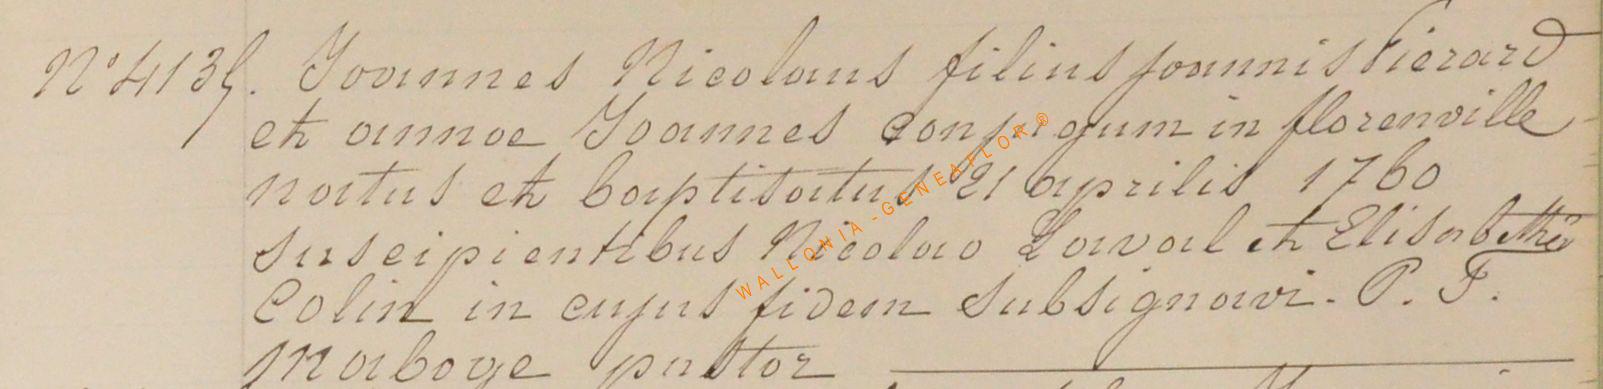 N° 4135. Joannes Nicolaus filius joannis Pierard
et annae Joannes conjugum in florenville
natus et baptisatus 21 aprilis 1760
suscipientibus Nicolao Laval et Elisabetha
Colin in cujus fidem subsignavi. P. F.
Maboge pastor
WALLONIA-GENEAFLOR®